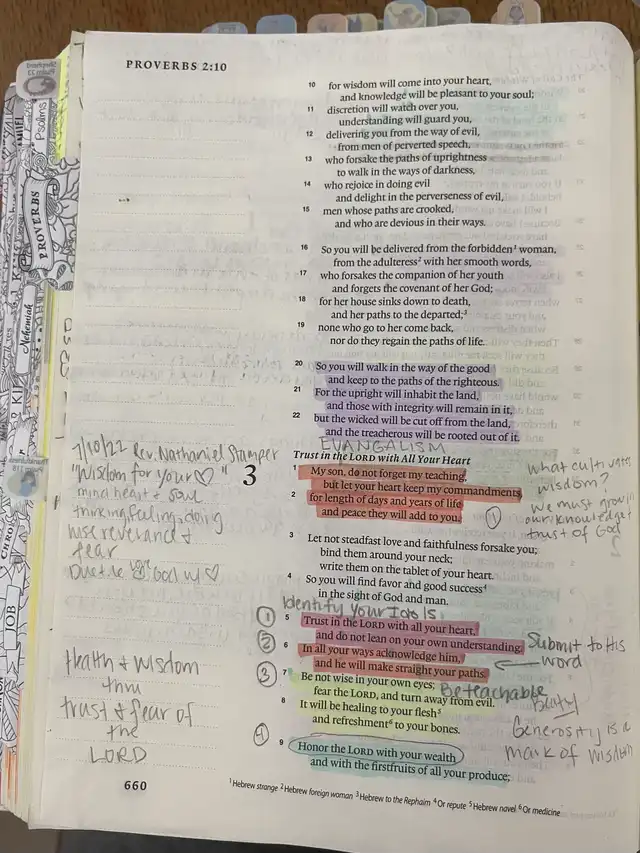 PROVERBS 2:10
10 for wisdom will come into your heart,
and knowledge will be pleasant to your soul;
11 discretion will watch over you,
understanding will guard you,
12 delivering you from the way of evil,
from men of perverted speech,
13 who forsake the paths of uprightness
to walk in the ways of darkness,
14 who rejoice in doing evil
and delight in the perverseness of evil,
15 men whose paths are crooked,
and who are devious in their ways.
16 So you will be delivered from the forbidden¹ woman,
from the adulteress² with her smooth words,
17 who forsakes the companion of her youth
and forgets the covenant of her God;
18 for her house sinks down to death,
and her paths to the departed;³
19 none who go to her come back,
nor do they regain the paths of life.
20 So you will walk in the way of the good
and keep to the paths of the righteous.
21 For the upright will inhabit the land,
and those with integrity will remain in it,
22 but the wicked will be cut off from the land,
and the treacherous will be rooted out of it.
EVANGALISM
Trust in the LORD with All Your Heart
3
1 My son, do not forget my teaching,
but let your heart keep my commandments,
2 for length of days and years of life
and peace they will add to you.
1
3 Let not steadfast love and faithfulness forsake you;
bind them around your neck;
write them on the tablet of your heart.
4 So you will find favor and good success⁴
in the sight of God and man.
Identify Your Idols
1 5 Trust in the LORD with all your heart,
2 and do not lean on your own understanding.
6 In all your ways acknowledge him,
and he will make straight your paths.
3 7 Be not wise in your own eyes; Be teachable
fear the LORD, and turn away from evil.
8 It will be healing to your flesh⁵
and refreshment⁶ to your bones.
4 9 Honor the LORD with your wealth
and with the firstfruits of all your produce;
7/10/22 Rev. Nathaniel Stamper
"Wisdom for your ♡"
mind heart & soul
thinking, feeling, doing
reverance &
fear
God w/ ♡
Health & wisdom
thru
trust & fear of
the
LORD
What cultivates
wisdom?
we must grow in
our knowledge &
trust of God
Submit to His
word
Generosity is a
mark of wisdom
660
¹ Hebrew strange ² Hebrew foreign woman ³ Hebrew to the Rephaim ⁴ Or repute ⁵ Hebrew navel ⁶ Or medicine
Psalms
PROVERBS
Nehemiah
JOB